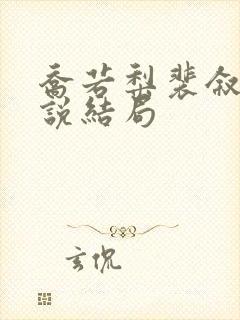 喬若梨裴叙
說結局
玄侃